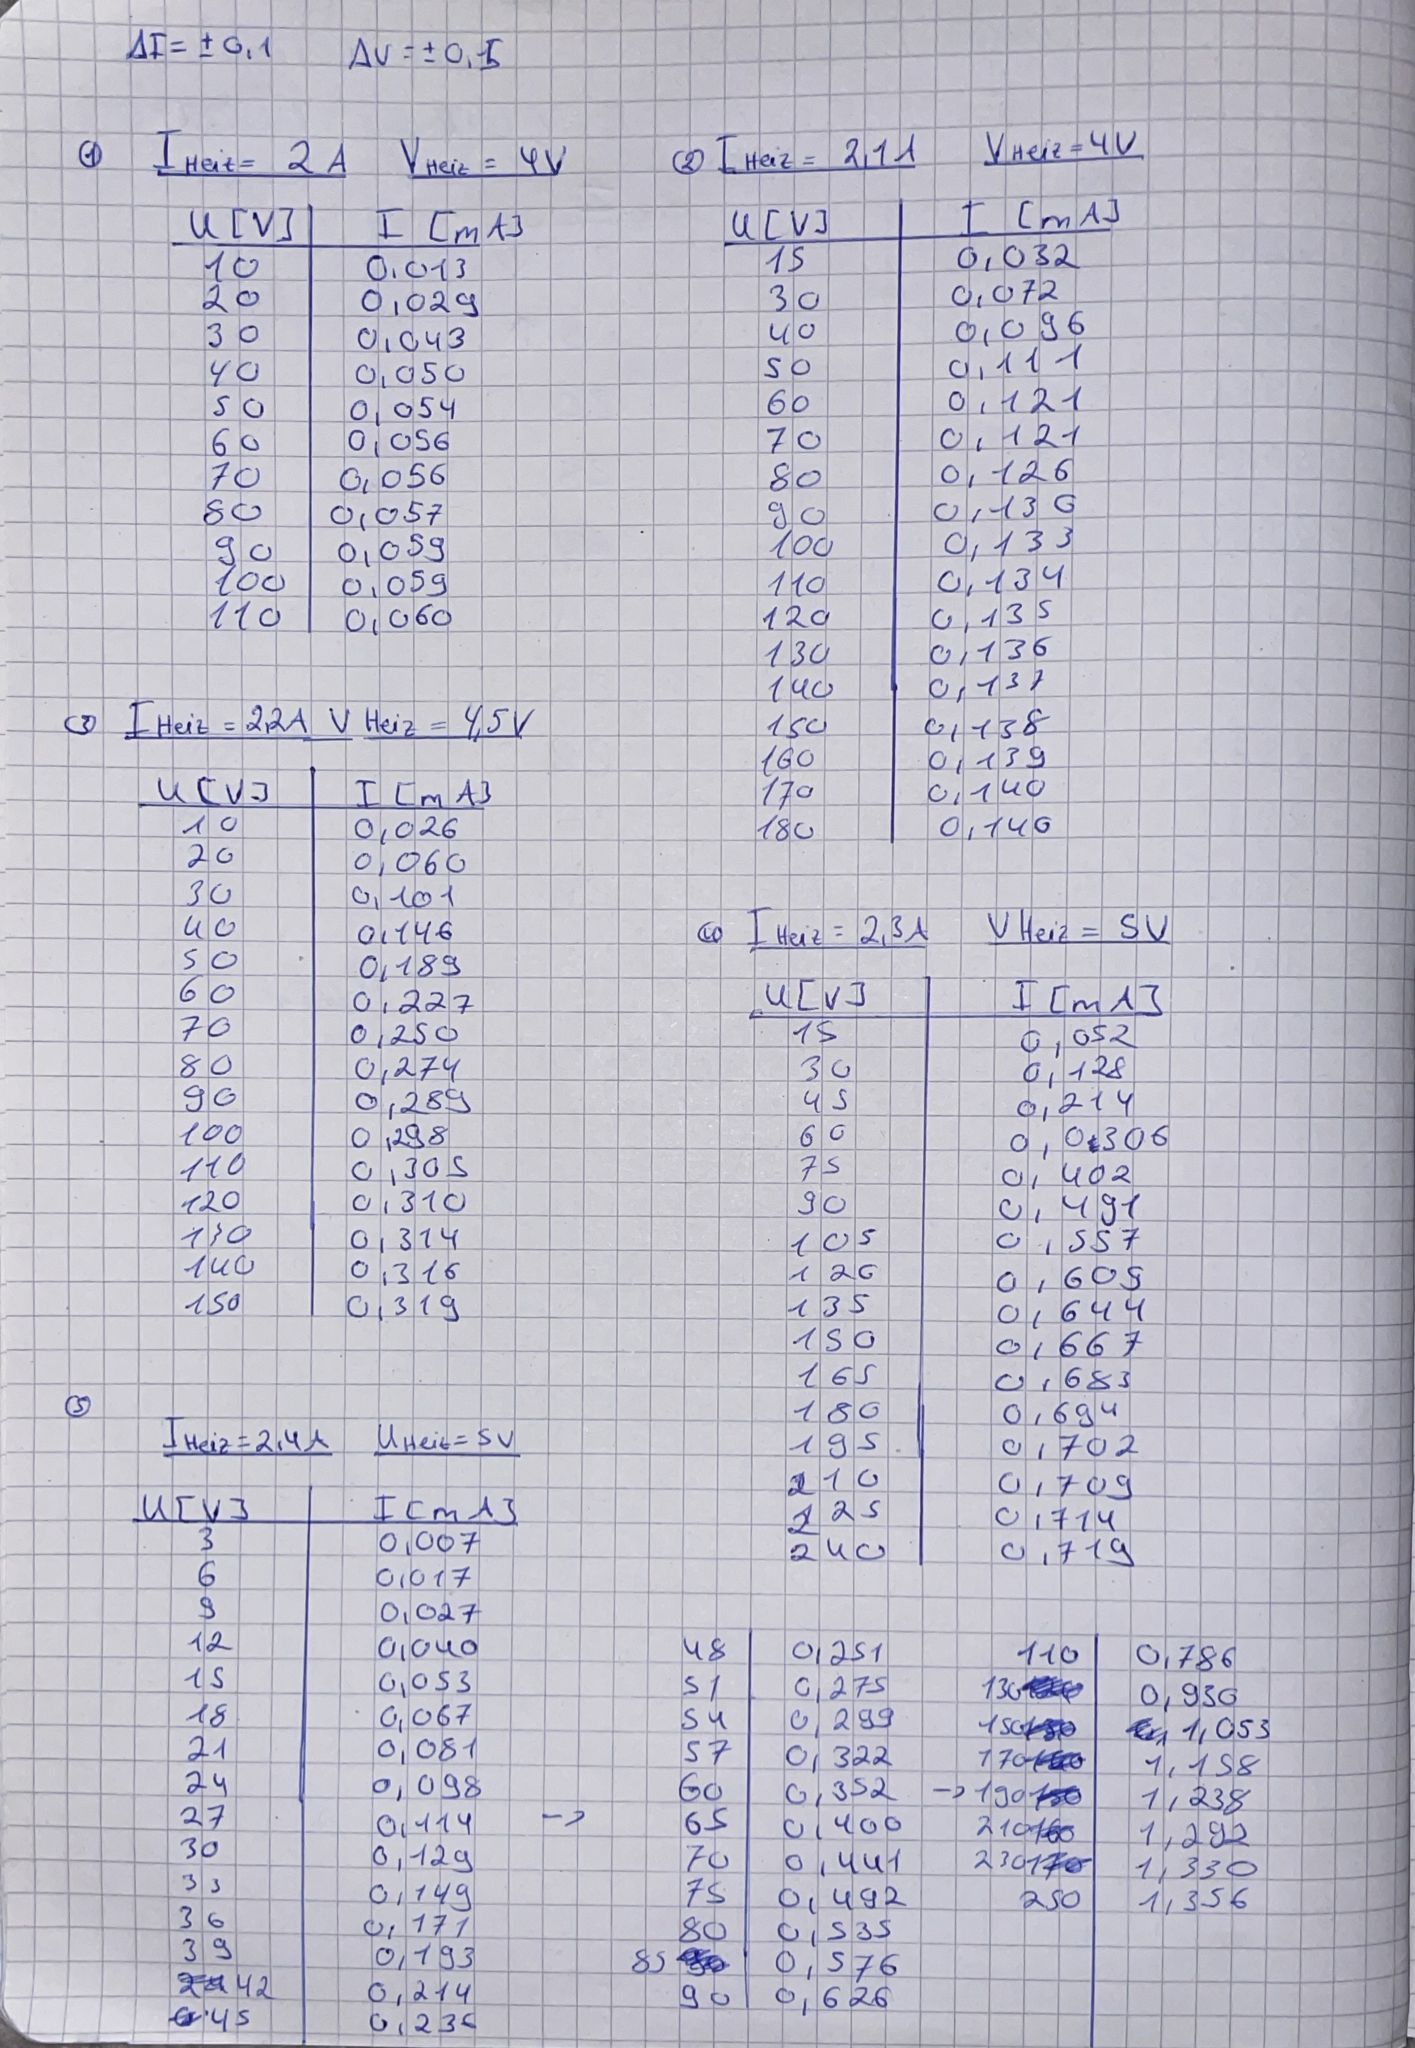 ΔI = ± 0,1 ΔV = ± 0,1
① I Heiz = 2 A V Heiz = 4V
U [V] I [mA]
10 0,013
20 0,029
30 0,043
40 0,050
50 0,054
60 0,056
70 0,056
80 0,057
90 0,059
100 0,059
110 0,060
② I Heiz = 2,1 A V Heiz = 4V
U [V] I [mA]
15 0,032
30 0,072
40 0,096
50 0,111
60 0,121
70 0,121
80 0,126
90 0,130
100 0,133
110 0,134
120 0,135
130 0,136
140 0,137
150 0,138
160 0,139
170 0,140
180 0,140
③ I Heiz = 2,2A V Heiz = 4,5V
U [V] I [mA]
10 0,026
20 0,060
30 0,101
40 0,146
50 0,189
60 0,227
70 0,250
80 0,274
90 0,289
100 0,298
110 0,305
120 0,310
130 0,314
140 0,316
150 0,319
④ I Heiz = 2,3 A V Heiz = 5V
U [V] I [mA]
15 0,052
30 0,128
45 0,214
60 0,0306
75 0,402
90 0,491
105 0,557
120 0,609
135 0,644
150 0,667
165 0,683
180 0,694
195 0,702
210 0,709
225 0,714
240 0,719
⑤
I Heiz = 2,4A U Heiz = 5V
U [V] I [mA]
3 0,007
6 0,017
9 0,027
12 0,040
15 0,053
18 0,067
21 0,081
24 0,098
27 0,114 →
30 0,129
33 0,149
36 0,171
39 0,193
42 0,214
45 0,235
48 0,251
51 0,275
54 0,299
57 0,322
60 0,352 →
65 0,400
70 0,441
75 0,492
80 0,535
85 0,576
90 0,626
110 0,786
130 0,930
150 1,053
170 1,158
190 1,238
210 1,292
230 1,330
250 1,356